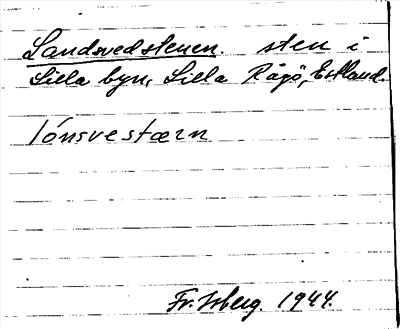 Landsvedstenen. sten i
Lilla byn, Lilla Rågö, Estland.
lónsvestærn
Fr. Isberg. 1944.